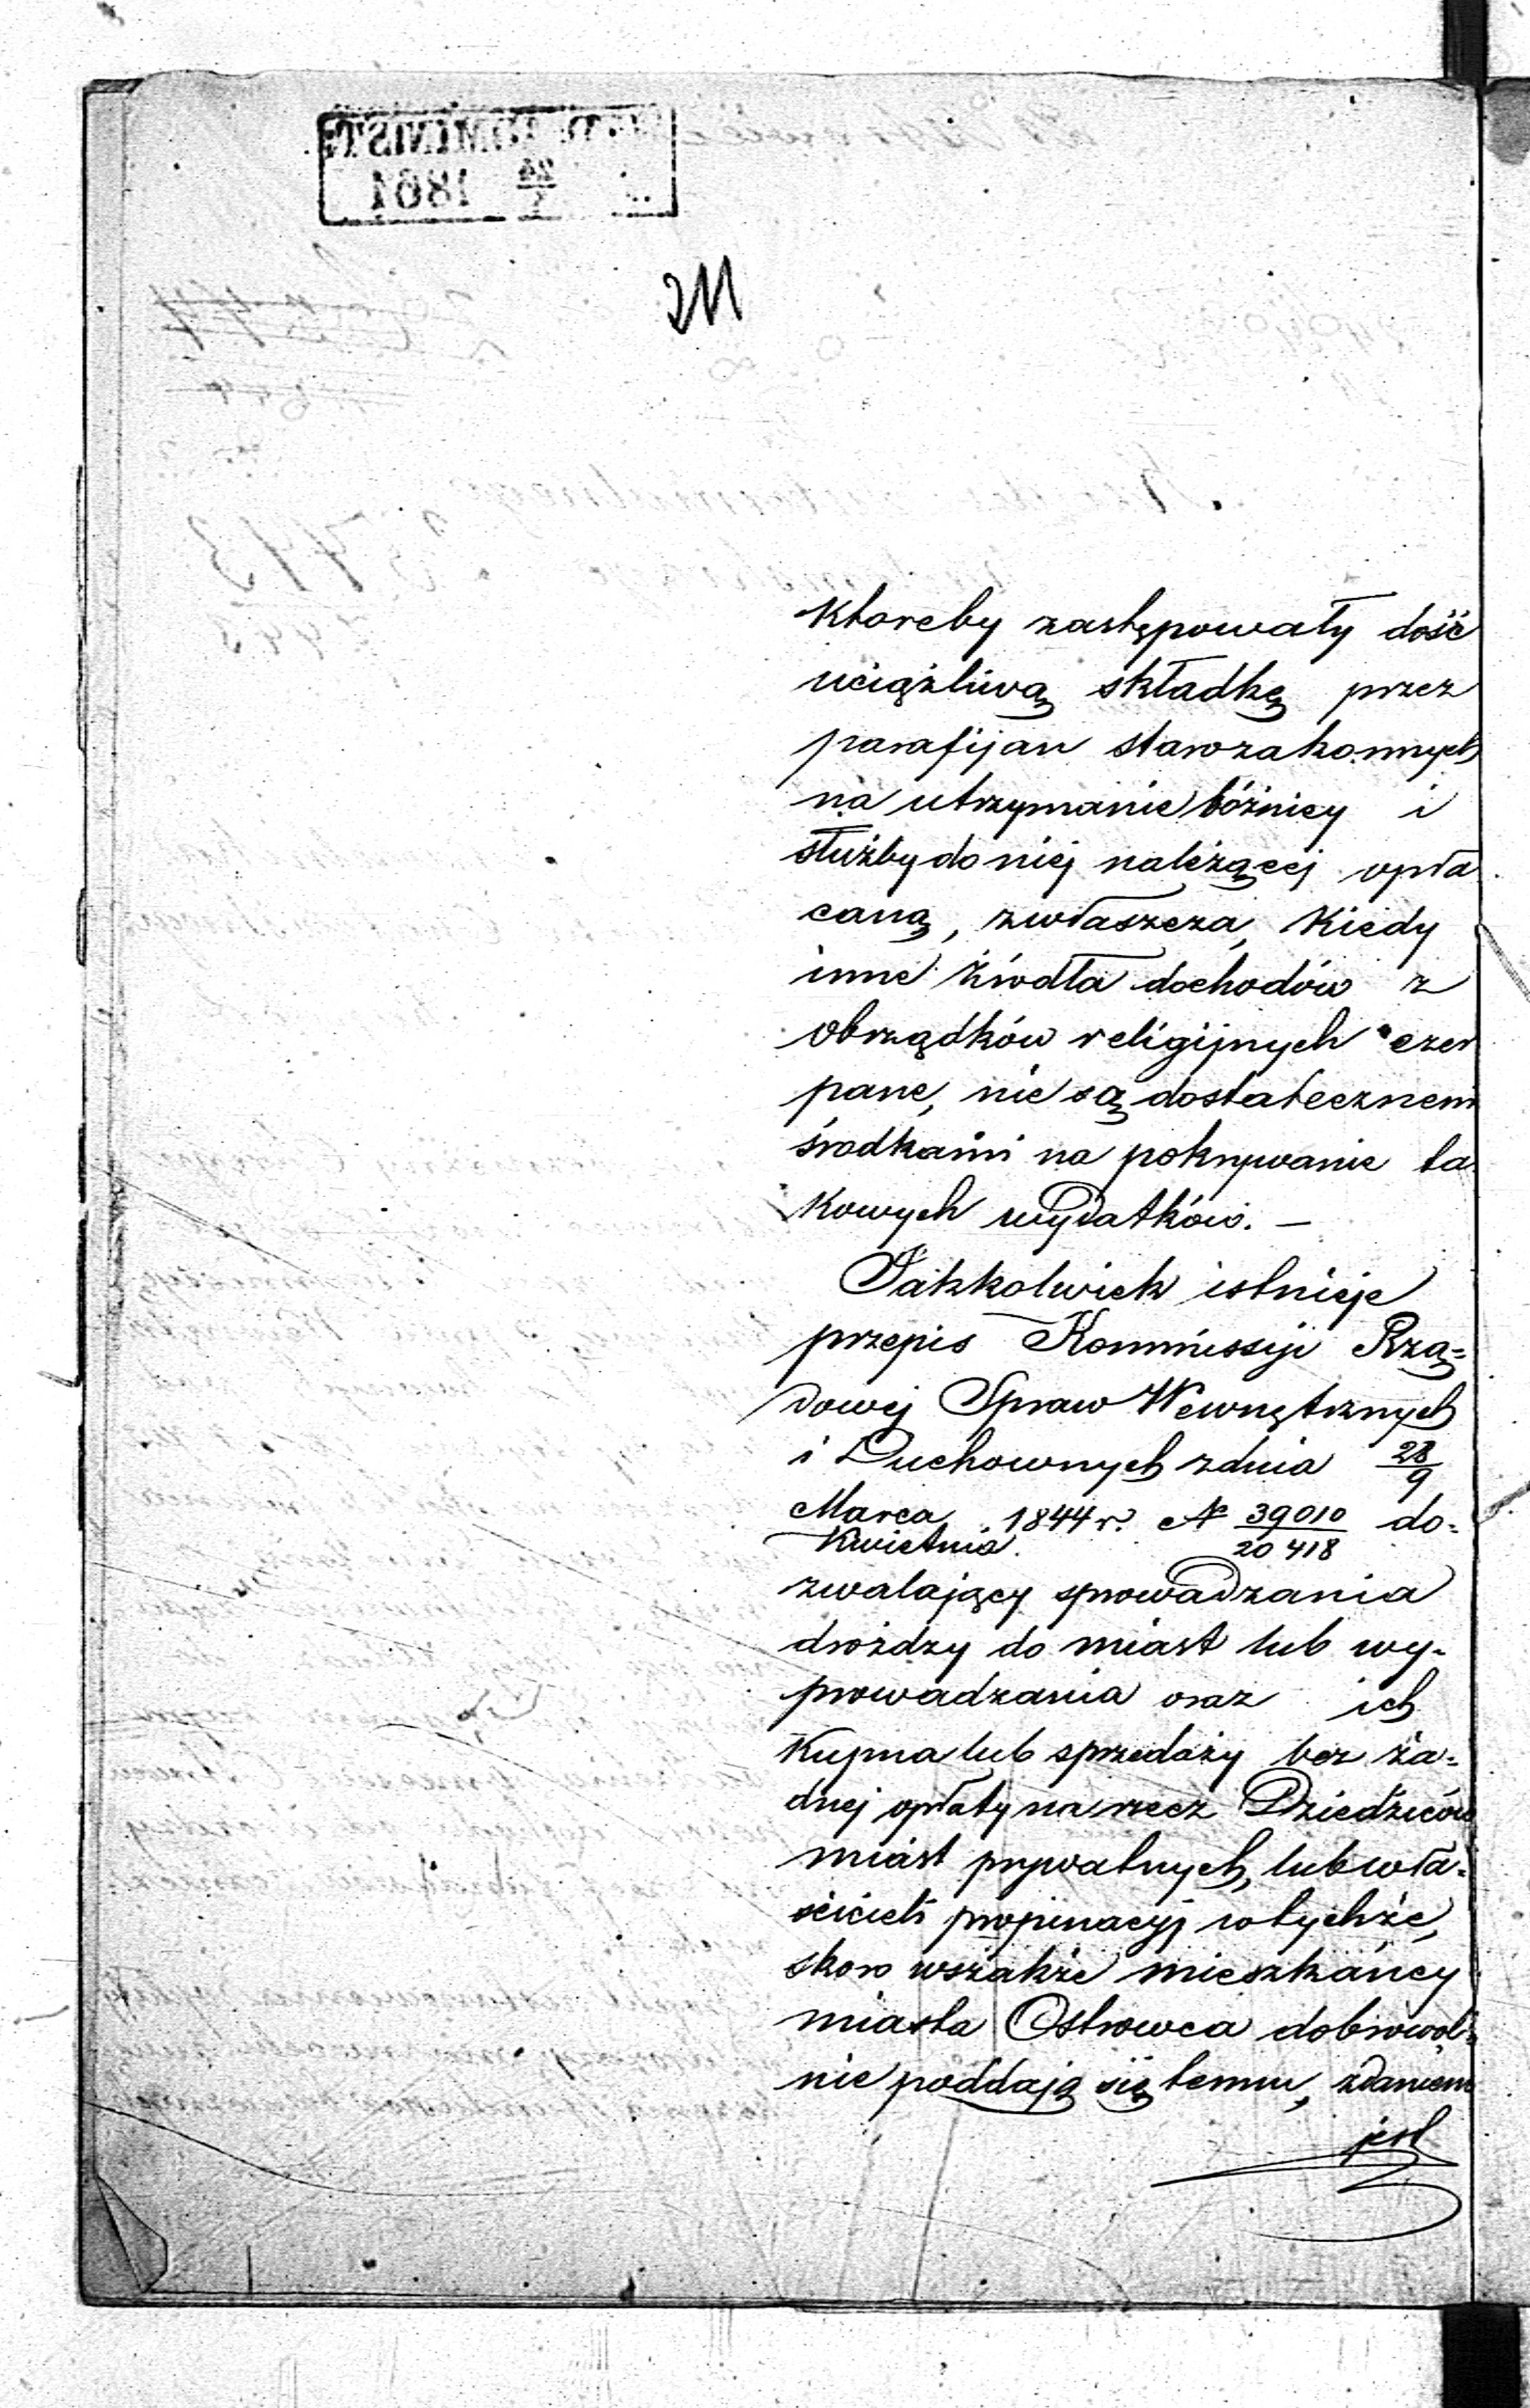 211
ktoreby zastępowały dość
uciążliwą składkę przez
parafijan starozakonnych
na utrzymanie bóżnicy i
służby do niej należącej opła
caną, zwłaszcza, Kiedy
inne źródła dochodów z
obrządków religijnych czer
pane, nie są dostatecznemi
środkami na pokrywanie ta
kowych wydatków. —
Jakkolwiek istnieje
przepis Kommissyi Rzą=
dowej Spraw Wewnętrznych
i Duchownych z dnia 28/9
Marca/Kwietnia 1844 r. N 39010/20418 do=
zwalający sprowadzania
drożdzy do miast lub wy=
prowadzania oraz ich
Kupna lub sprzedaży bez ża=
dnej opłaty na rzecz Dziedziców
miast prywatnych, lub wła=
ścicieli propinacyj w tychże,
skoro wszakże mieszkańcy
miasta Ostrowca dobrowol=
nie poddają się temu, zdaniem
jest